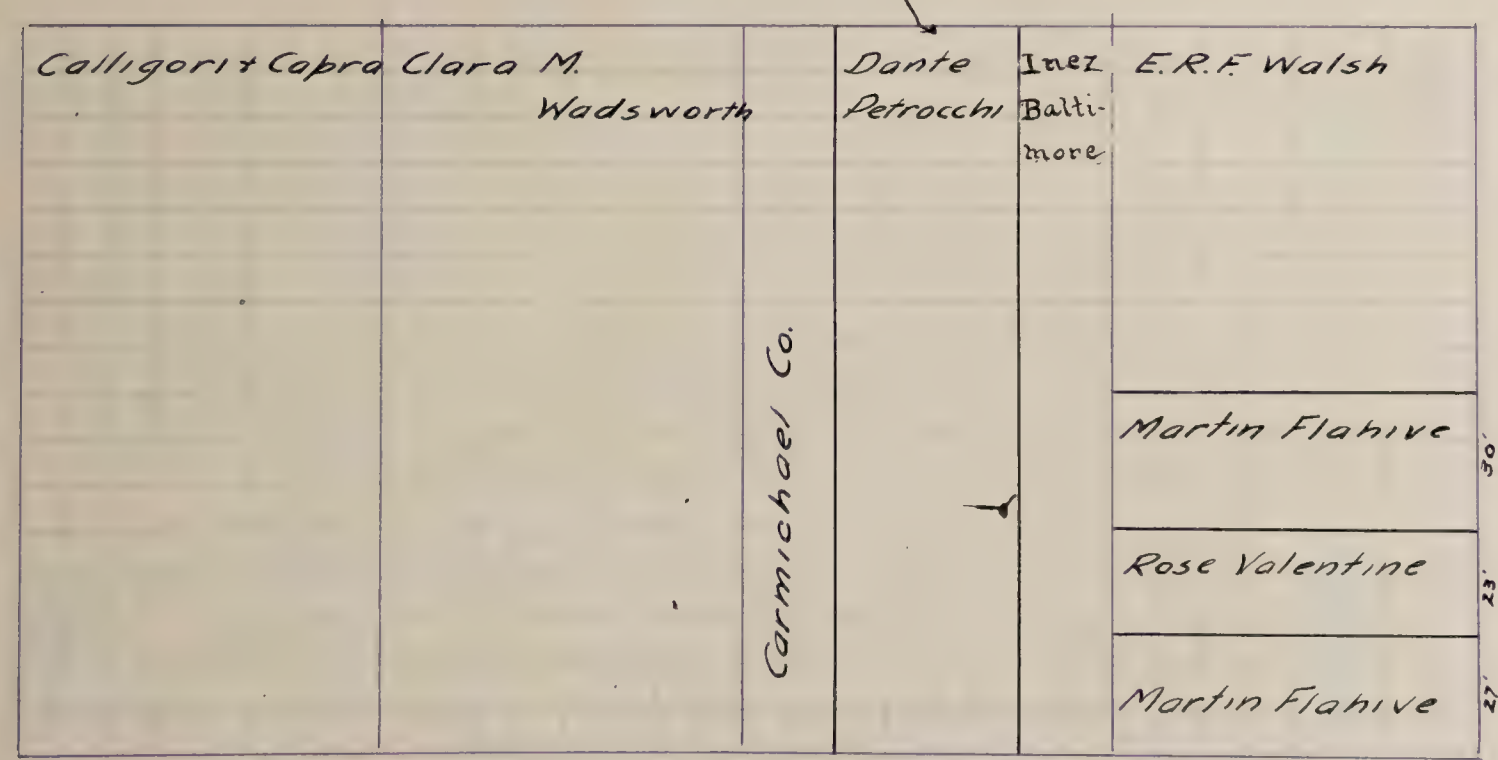 Calligori & Capra
Clara M.
Wadsworth
Carmichael Co.
Dante
Petrocchi
Inez
Balti-
more
E.R.F. Walsh
Martin Flahive
30'
Rose Valentine
23'
Martin Flahive
27'